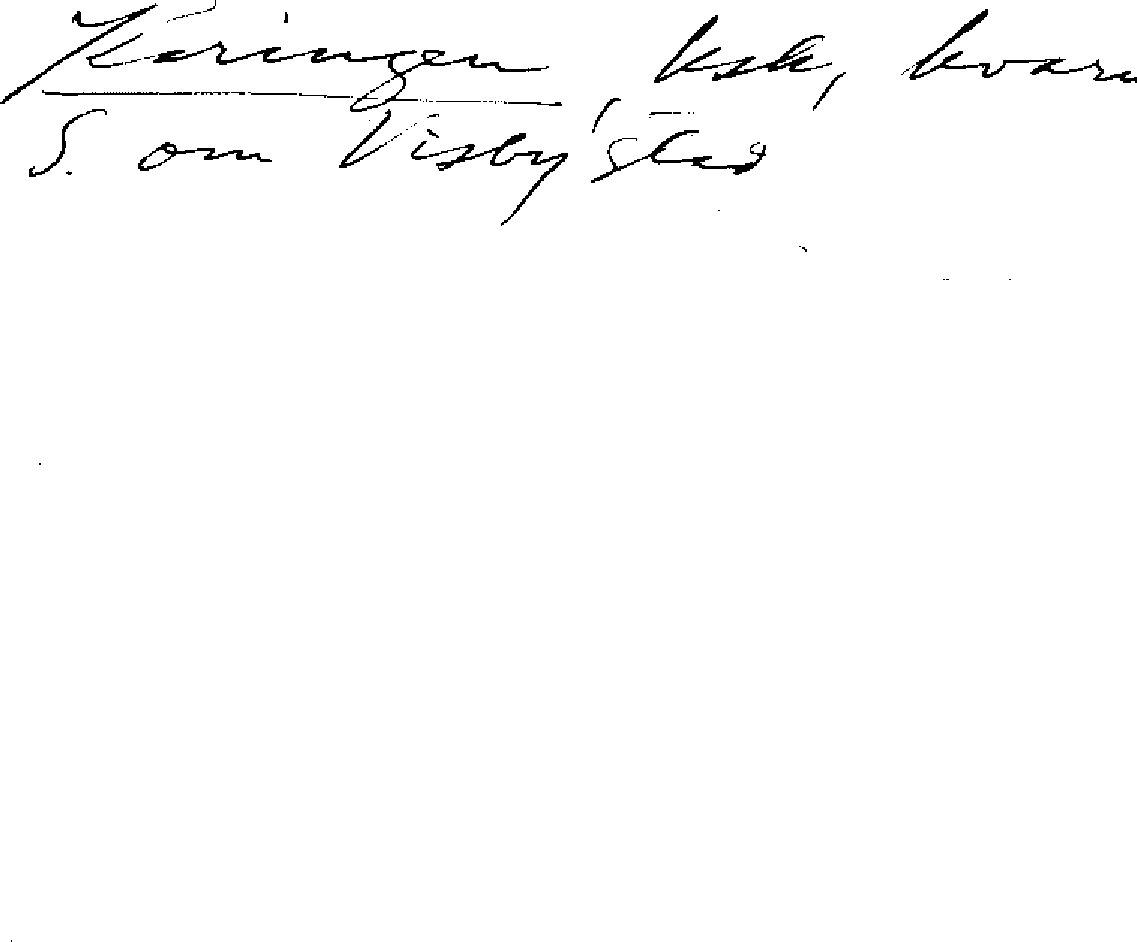 Käringen, ksk, kvarn
S. om Visby stad